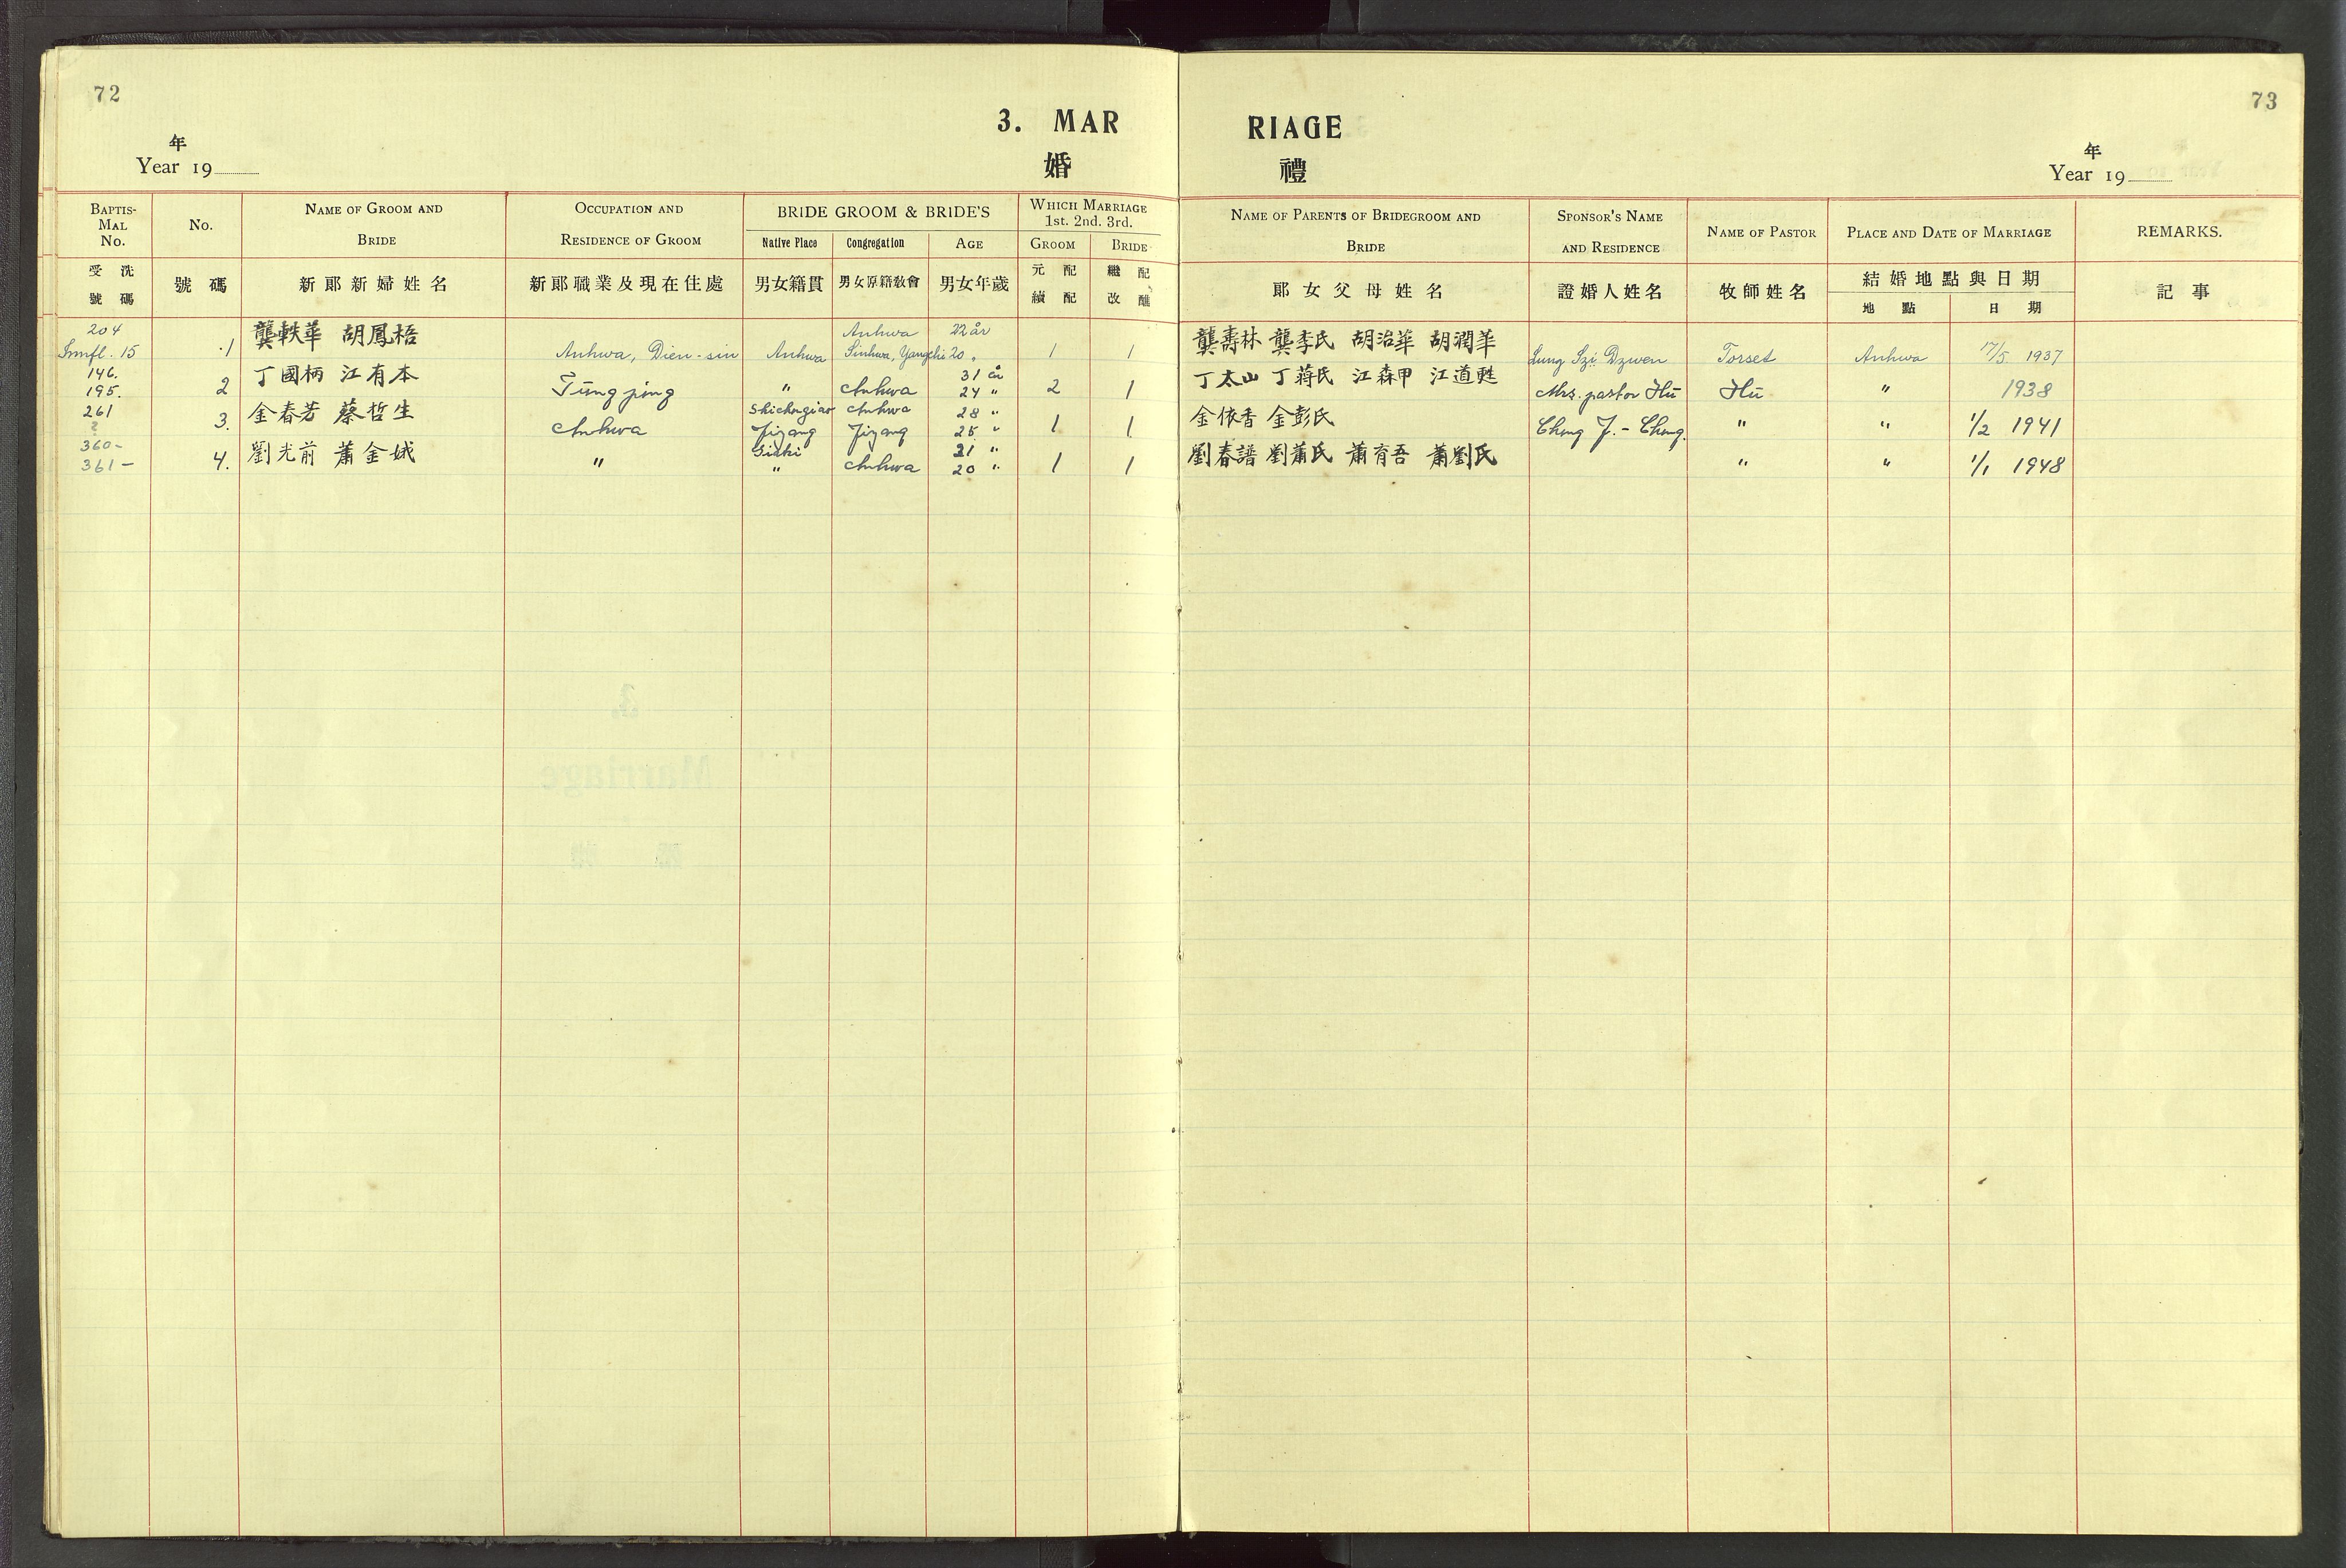 72
73
3. MARRIAGE
婚禮
年
Year 19
年
Year 19
BAPTISMAL No.
No.
NAME OF GROOM AND BRIDE
OCCUPATION AND RESIDENCE OF GROOM
BRIDE GROOM & BRIDE'S
Native Place
Congregation
AGE
WHICH MARRIAGE 1st. 2nd. 3rd.
GROOM
BRIDE
NAME OF PARENTS OF BRIDEGROOM AND BRIDE
SPONSOR'S NAME AND RESIDENCE
NAME OF PASTOR
PLACE AND DATE OF MARRIAGE
REMARKS.
受洗號碼
號碼
新郎新婦姓名
新郎職業及現在住處
男女籍貫
男女原籍敎會
男女年歲
元配 續配
繼配 改醮
郎女父母姓名
證婚人姓名
牧師姓名
結婚地點與日期
地點
日期
記事
204 Anhwa 22 år
15 1 龔軼華 胡鳳梧 Anhwa, Dien-sin Anhwa Sinhwa, Yangchi 20 „ 1 1 龔壽林 龔李氏 胡治華 胡潤華 Lung Szi Dzwen Torset Anhwa 17/5. 1937
146. 31 år
195. 2 丁國柄 江有本 Tüng ping " Anhwa 24 " 2 1 丁太山 丁蔣氏 江森甲 江道甦 Mrs. pastor Hü Hü " 1938
261 Shichungiao Anhwa 28 "
? 3. 金春芳 蔡哲生 Anhwa Jizang Jizang 25 " 1 1 金依香 金彭氏 Chang J.-Chang. " " 1/2 1941
360- 21 "
361- 4. 劉光前 蕭金娥 " " Anhwa 20 " 1 1 劉春譜 劉蕭氏 蕭育吾 蕭劉氏 " " 1/1 1948